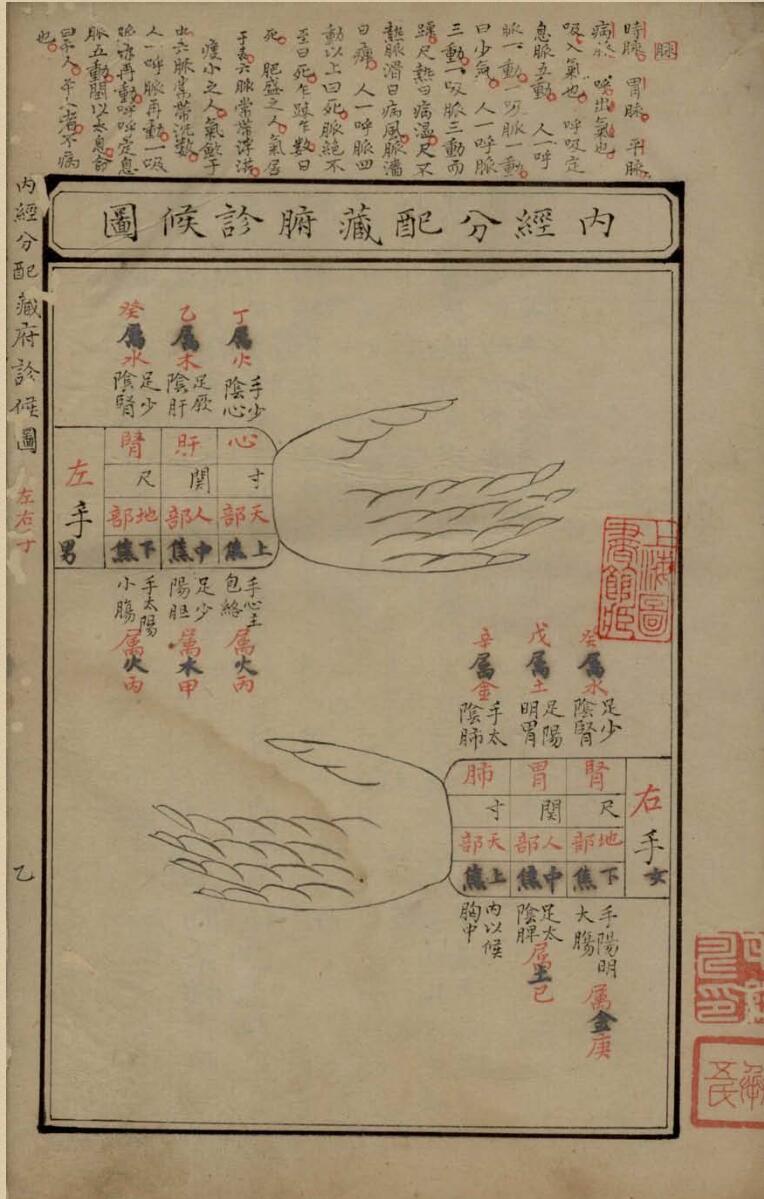 脉
時脉 胃脉 平脉
病脉 呼出氣也
吸入氣也 呼吸定
息脉五動 人一呼
脉一動一吸脉一動
曰少氣 人一呼脉
三動一吸脉三動而
躁尺熱曰病温尺不
熱脉滑曰病風脉濇
曰痺 人一呼脉四
動以上曰死脉絶不
至曰死乍踈乍數曰
死 肥盛之人氣居
于表六脉常帶浮洪
瘦小之人氣斂于
出六脉常帶沉數
人一呼脉再動一吸
脉亦再動呼吸定息
脉五動閏以太息命
曰平人平人者不病
也
內經分配藏腑診候圖
內經分配藏府診候圖
左右寸
乙
丁屬火
手少陰心
乙屬木
足厥陰肝
癸屬水
足少陰腎
心 肝 腎
寸 関 尺
天部 人部 地部
上焦 中焦 下焦
左手男
手心主包絡
屬火丙
足少陽胆
屬木甲
手太陽小腸
屬火丙
癸屬水
足少陰腎
戊屬土
足陽明胃
辛屬金
手太陰肺
腎 胃 肺
尺 関 寸
地部 人部 天部
下焦 中焦 上焦
右手女
手陽明大腸
屬金庚
足太陰脾
屬土己
內以候胸中
上海圖書館印